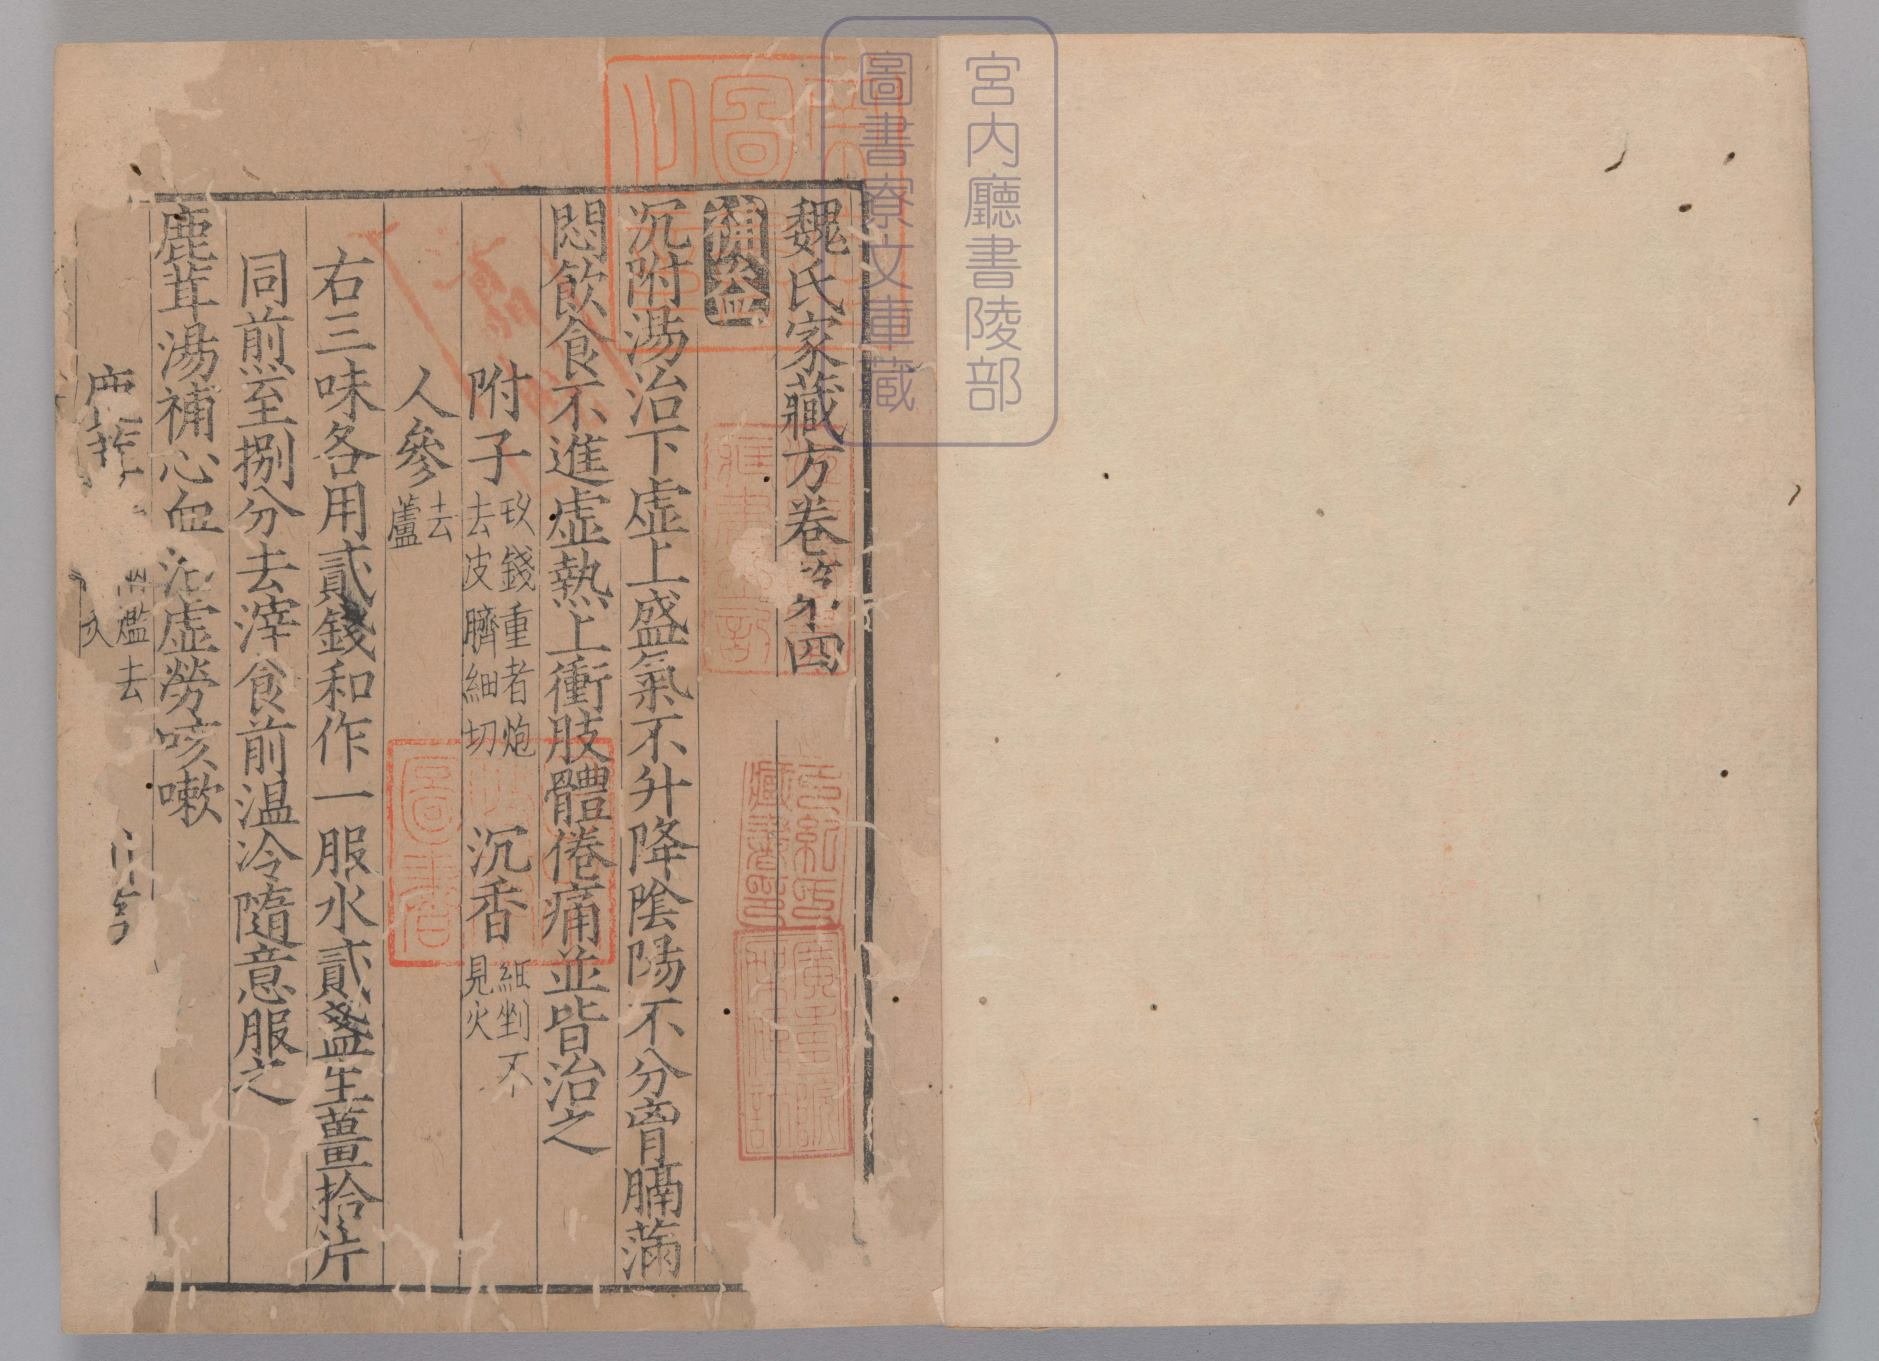 宮内廳書陵部
圖書寮文庫蔵
魏氏家藏方卷第四
補益
沉附湯治下虛上盛氣不升降陰陽不分胷膈滿
悶飲食不進虛熱上衝肢體倦痛並皆治之
附子玖錢重者炮去皮臍細切 沉香紙剉不見火
人參去蘆
右三味各用貳錢和作一服水貳盞生薑拾片
同煎至捌分去滓食前温冷隨意服之
鹿茸湯補心血治虛勞咳嗽
鹿茸 去